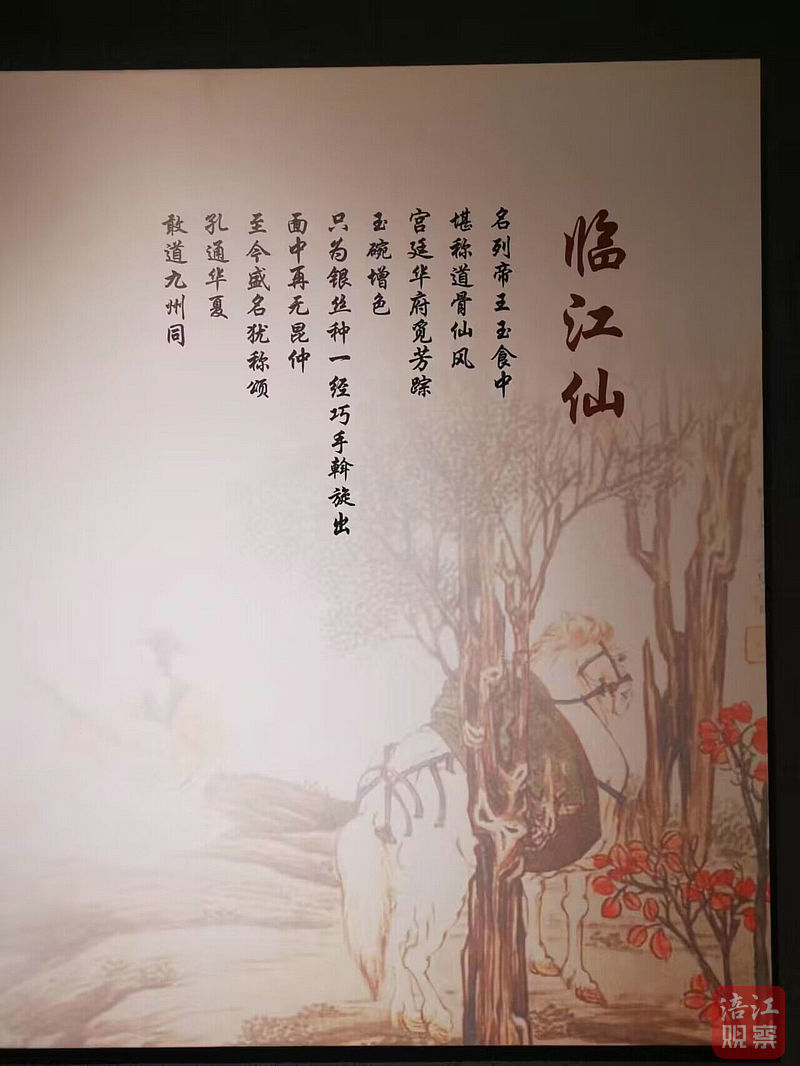 临江仙
名列帝王玉食中
堪称道骨仙风
宫廷华府觅芳踪
玉碗增色
只为银丝种一经巧手斡旋出
面中再无昆仲
至今盛名犹称颂
孔通华夏
敢道九州同
涪江
观察